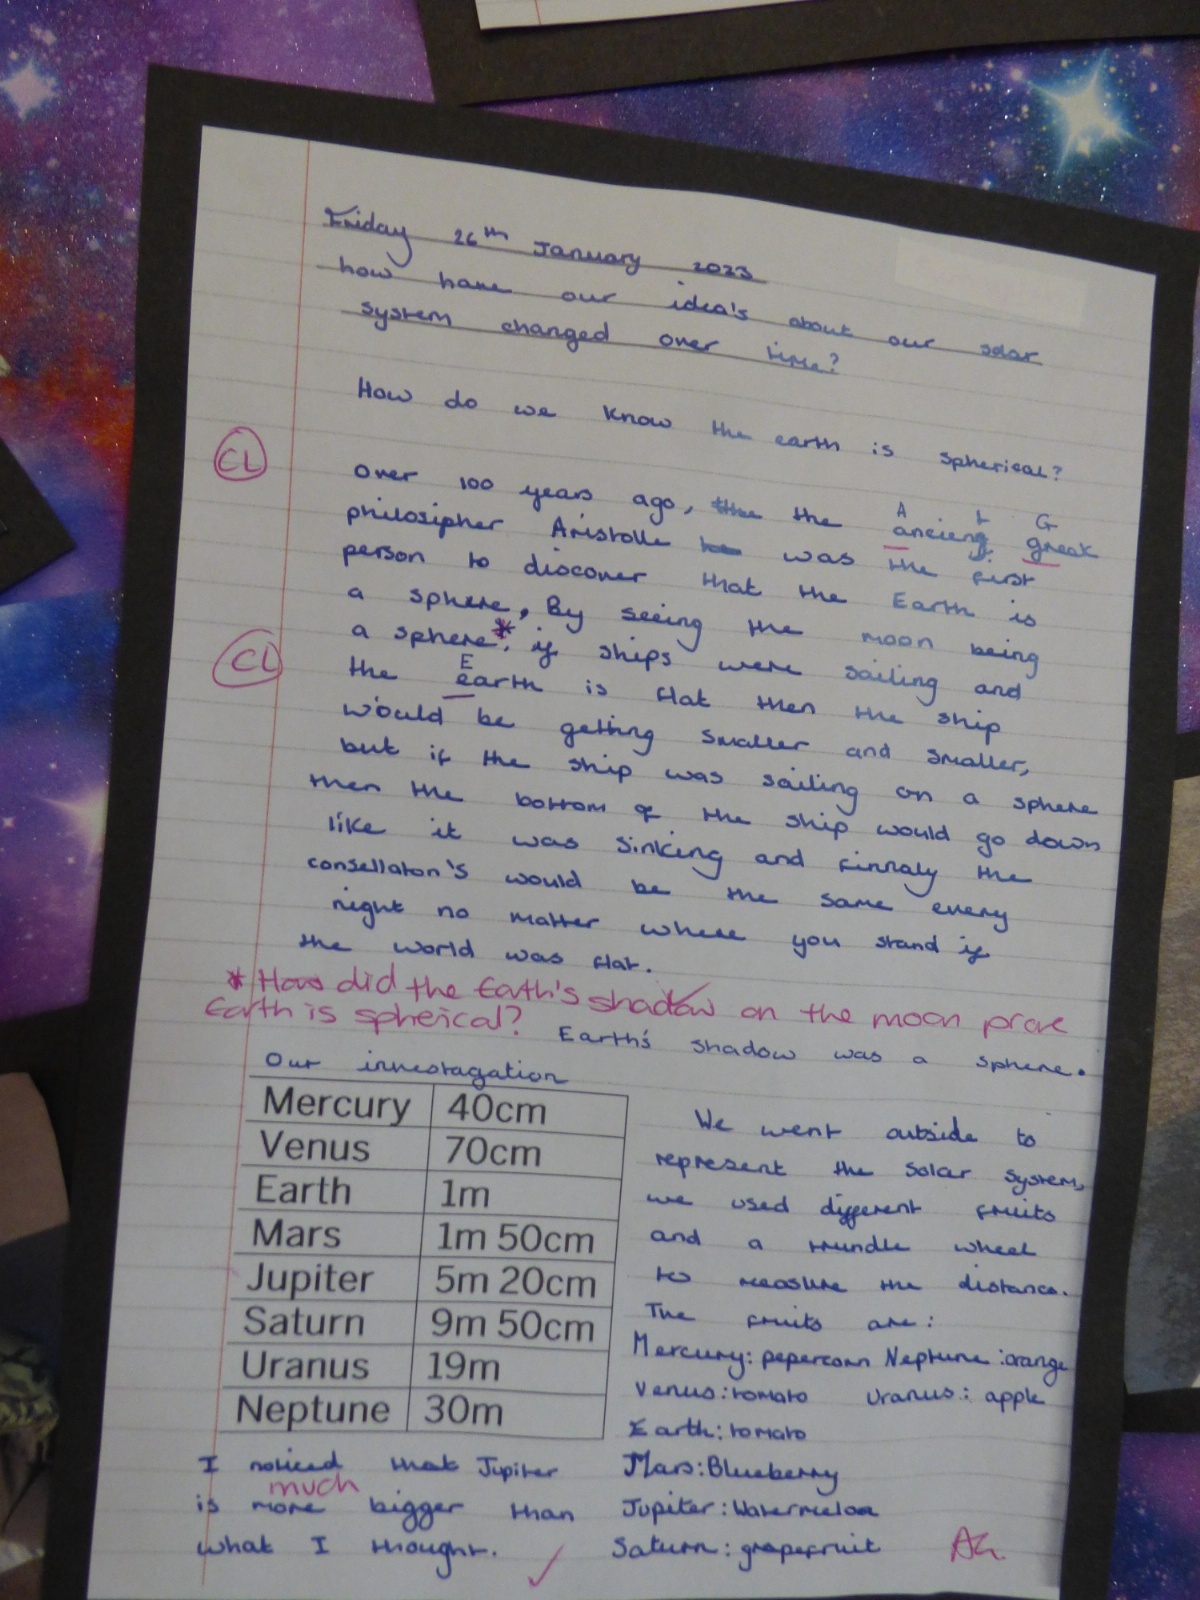 Friday 26th January 2023
how have our idea's about our solar
system changed over time?
How do we know the earth is spherical?
CL
Over 100 years ago, the the ancient greak
A t G
philosipher Aristolle was the first
person to discover that the Earth is
a sphere, By seeing the moon being
a sphere*, if ships were sailing and
CL
E
the earth is flat then the ship
would be getting smaller and smaller,
but if the ship was sailing on a sphere
then the bottom of the ship would go down
like it was sinking and finnaly the
consellaton's would be the same every
night no matter where you stand if
the world was flat.
* How did the Earth's shadow on the moon prove
Earth is spherical? Earth's shadow was a sphere.
Our investagation
Mercury 40cm
Venus 70cm
Earth 1m
Mars 1m 50cm
Jupiter 5m 20cm
Saturn 9m 50cm
Uranus 19m
Neptune 30m
We went outside to
represent the solar system,
we used different fruits
and a trundle wheel
to measure the distance.
The fruits are:
Mercury: pepercorn Neptune: orange
Venus: tomato Uranus: apple
Earth: tomato
Mars: Blueberry
Jupiter: Watermelon
Saturn: grapefruit
I noticed that Jupiter
much
is more bigger than
what I thought.